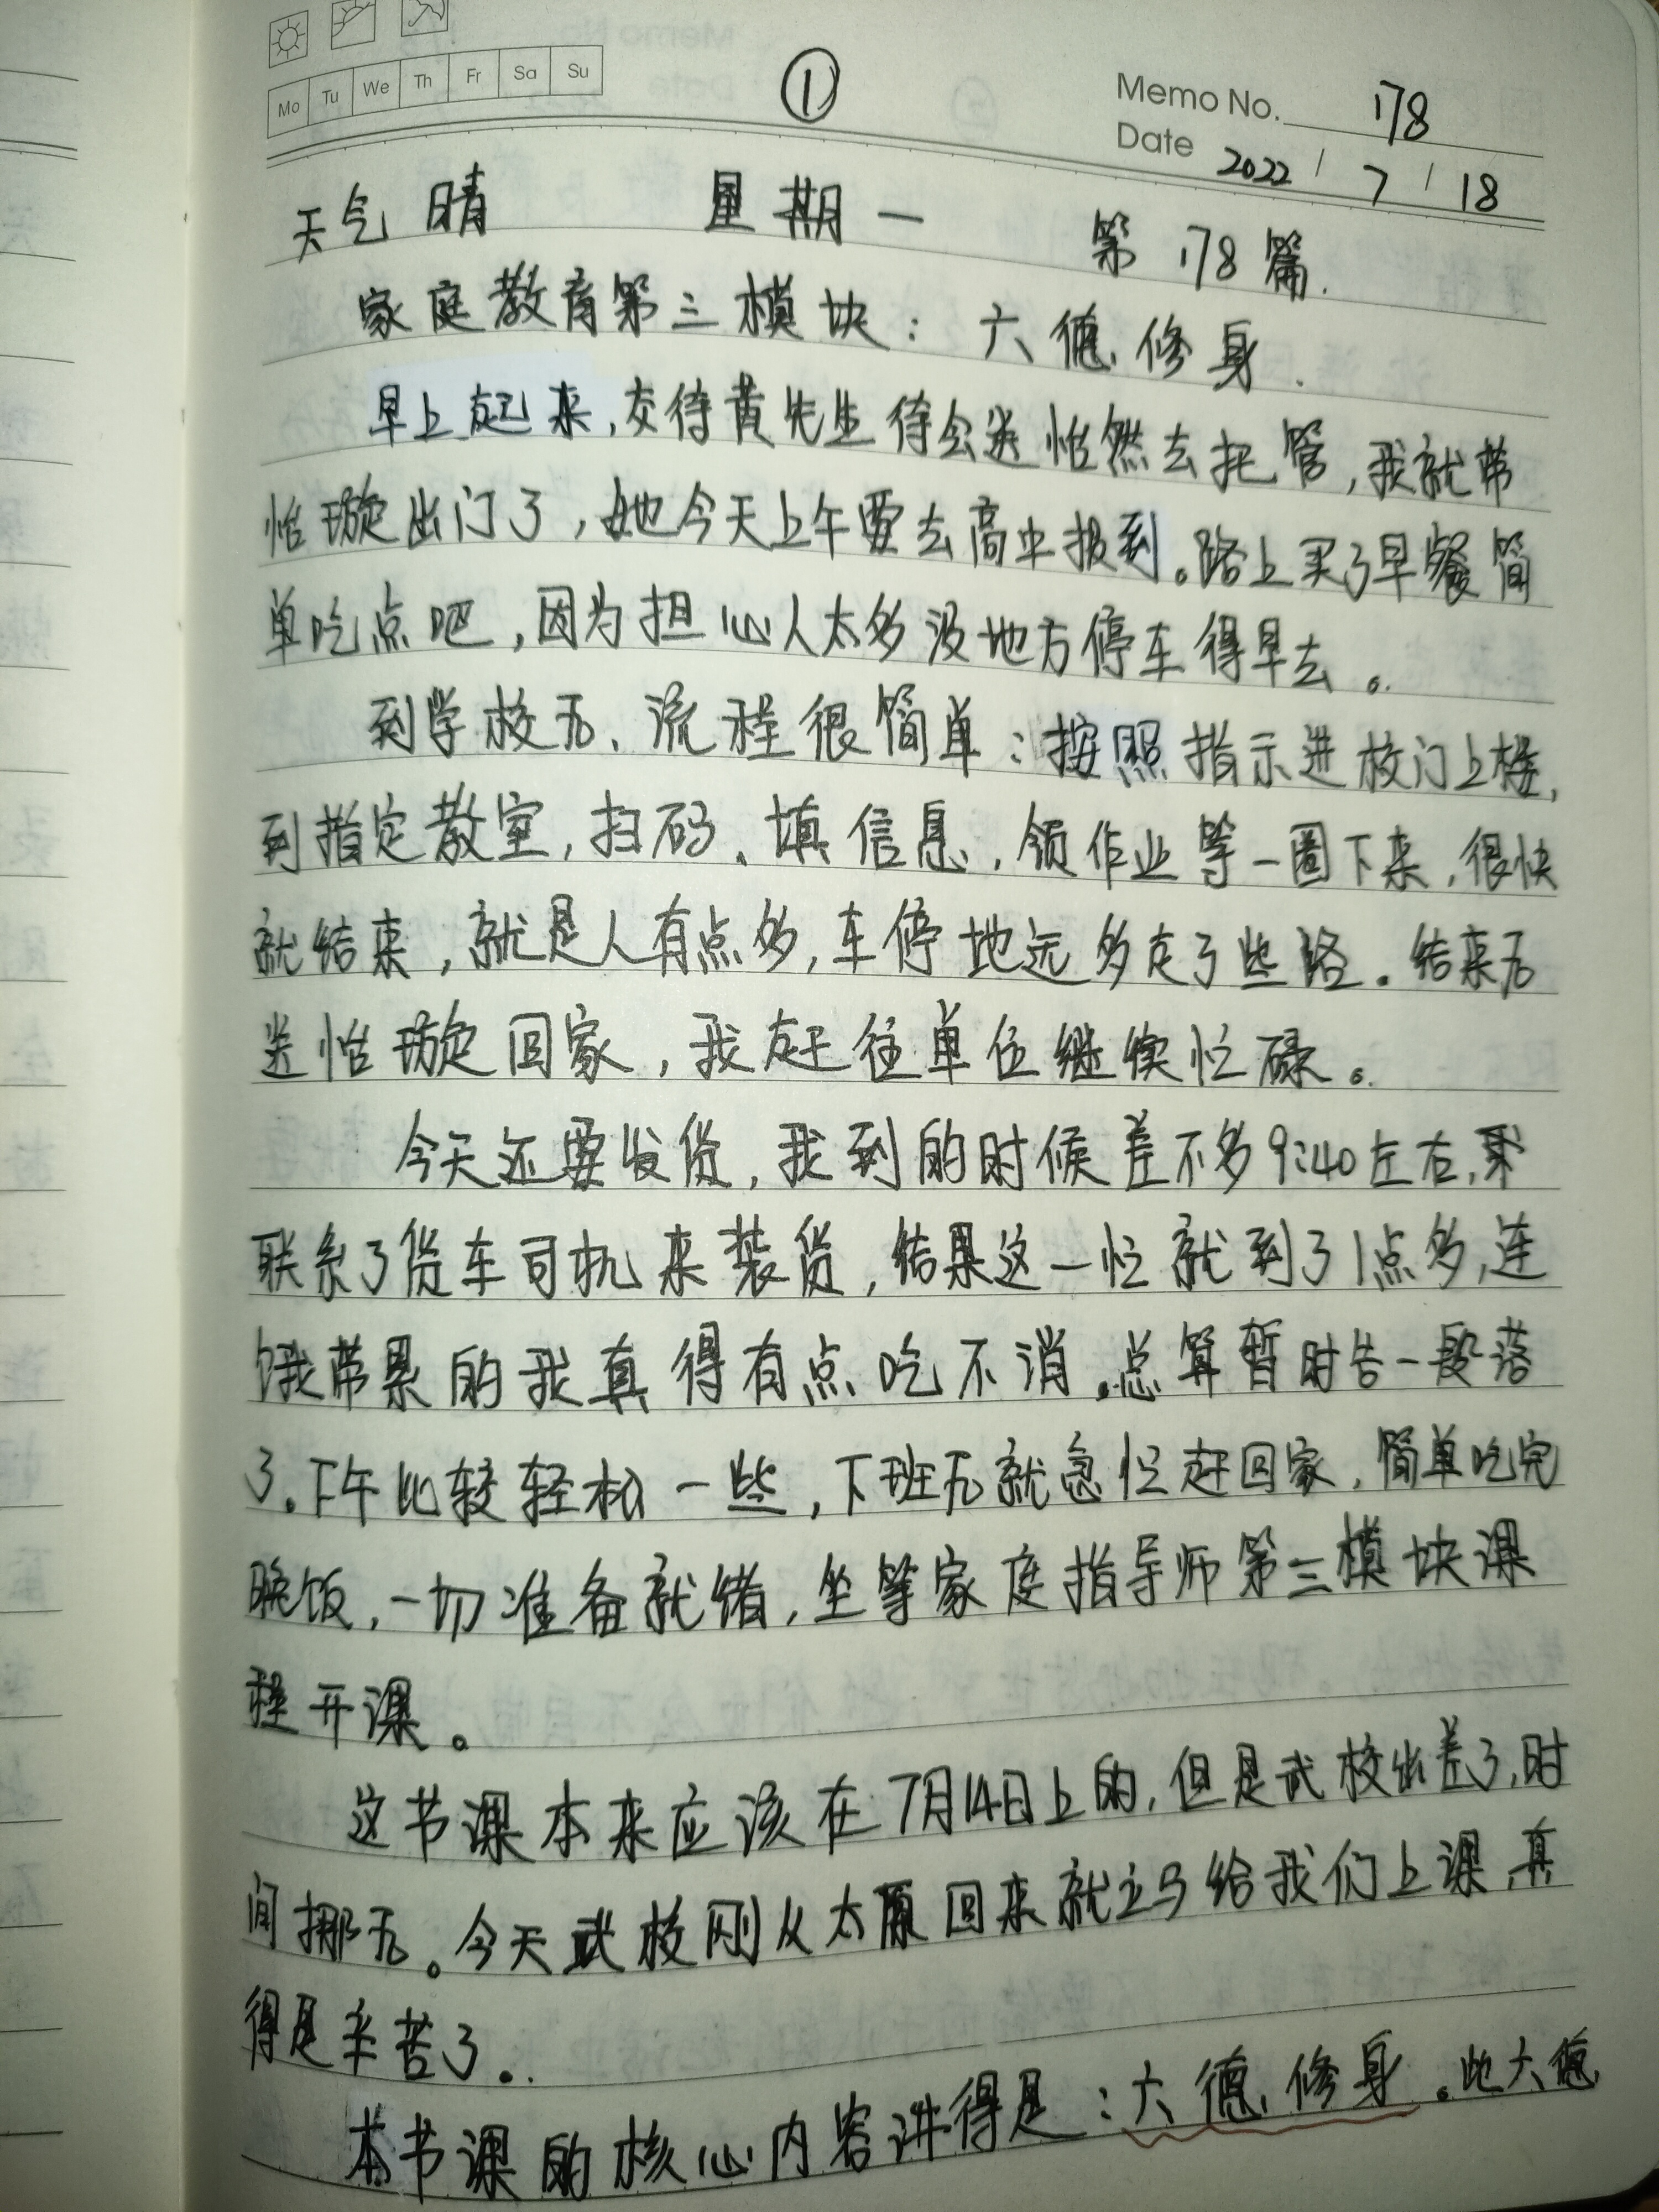 Mo Tu We Th Fr Sa Su
①
Memo No. 178
Date 2022 / 7 / 18
天气 晴 星期一 第 178 篇.
家庭教育第三模块：六德修身.
早上起来,交待黄先生待会送怡然去把管,我就带
怡璇出门了,她今天上午要去高中报到。路上买了早餐简
单吃点吧,因为担心人太多没地方停车得早去。
到学校后、流程很简单：按照指示进校门上楼,
到指定教室,扫码、填信息,领作业等一圈下来,很快
就结束,就是人有点多,车停地远多走了些路。结束后
送怡璇回家,我赶往单位继续忙碌。
今天还要发货,我到的时候差不多9:40左右,
联系了货车司机来装货,结果这一忙就到了1点多,连
饿带累的我真得有点吃不消。总算暂时告一段落
了。下午比较轻松一些,下班后就急忙赶回家,简单吃完
晚饭,一切准备就绪,坐等家庭指导师第三模块课
程开课。
这节课本来应该在7月14日上的,但是武校出差了,时
间挪后。今天武校刚从太原回来就立马给我们上课,真
得是辛苦了。
本节课的核心内容讲得是：六德修身。此六德